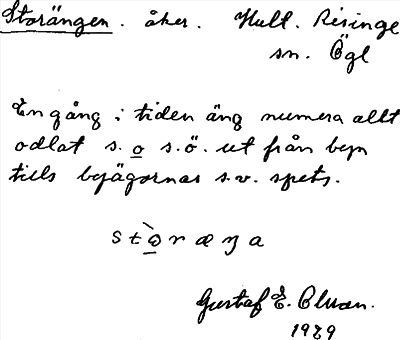 Storängen. åker. Hult. Risinge
sn. Ögl
En gång i tiden äng numera allt
odlat s. o s.ö. ut från byn
tills byägornas s.v. spets.
Gustaf E.
1929